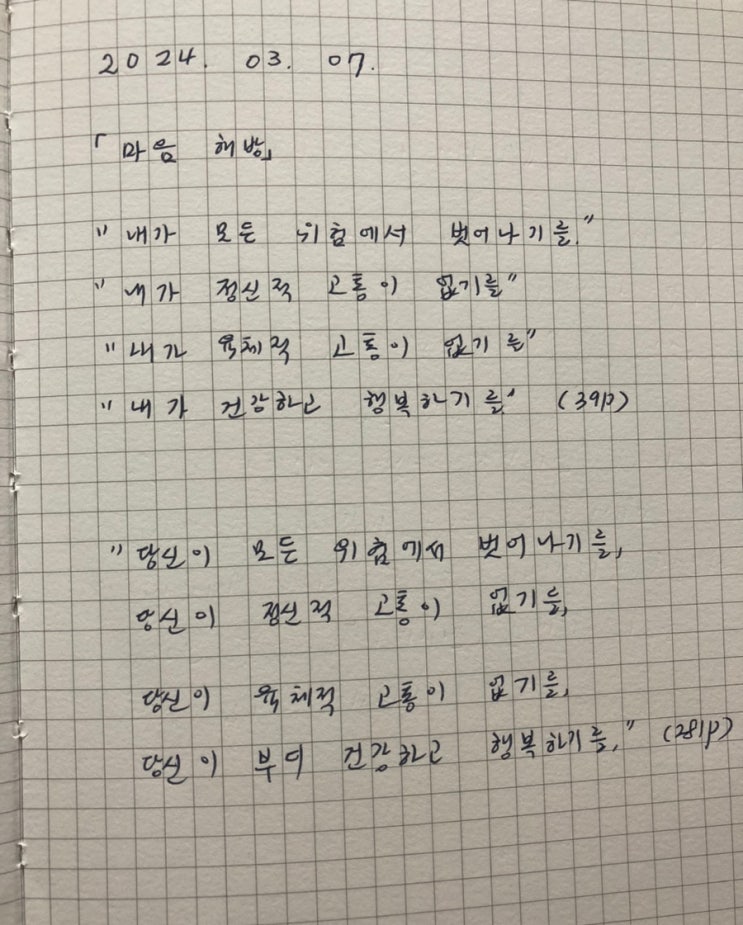 2024. 03. 07.
「마음 해방」
"내가 모든 위험에서 벗어나기를."
"내가 정신적 고통이 없기를"
"내가 육체적 고통이 없기를"
"내가 건강하고 행복하기를" (39p)
"당신이 모든 위험에서 벗어나기를,
당신이 정신적 고통이 없기를,
당신이 육체적 고통이 없기를,
당신이 부디 건강하고 행복하기를." (281p)